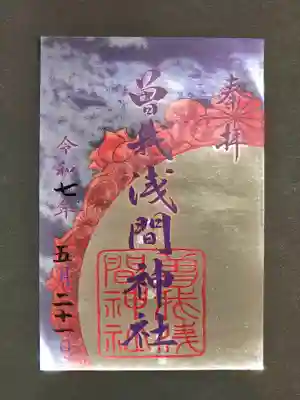 奉拝
曽我浅間神社
曽我浅
間神社
令和七年五月二十一日